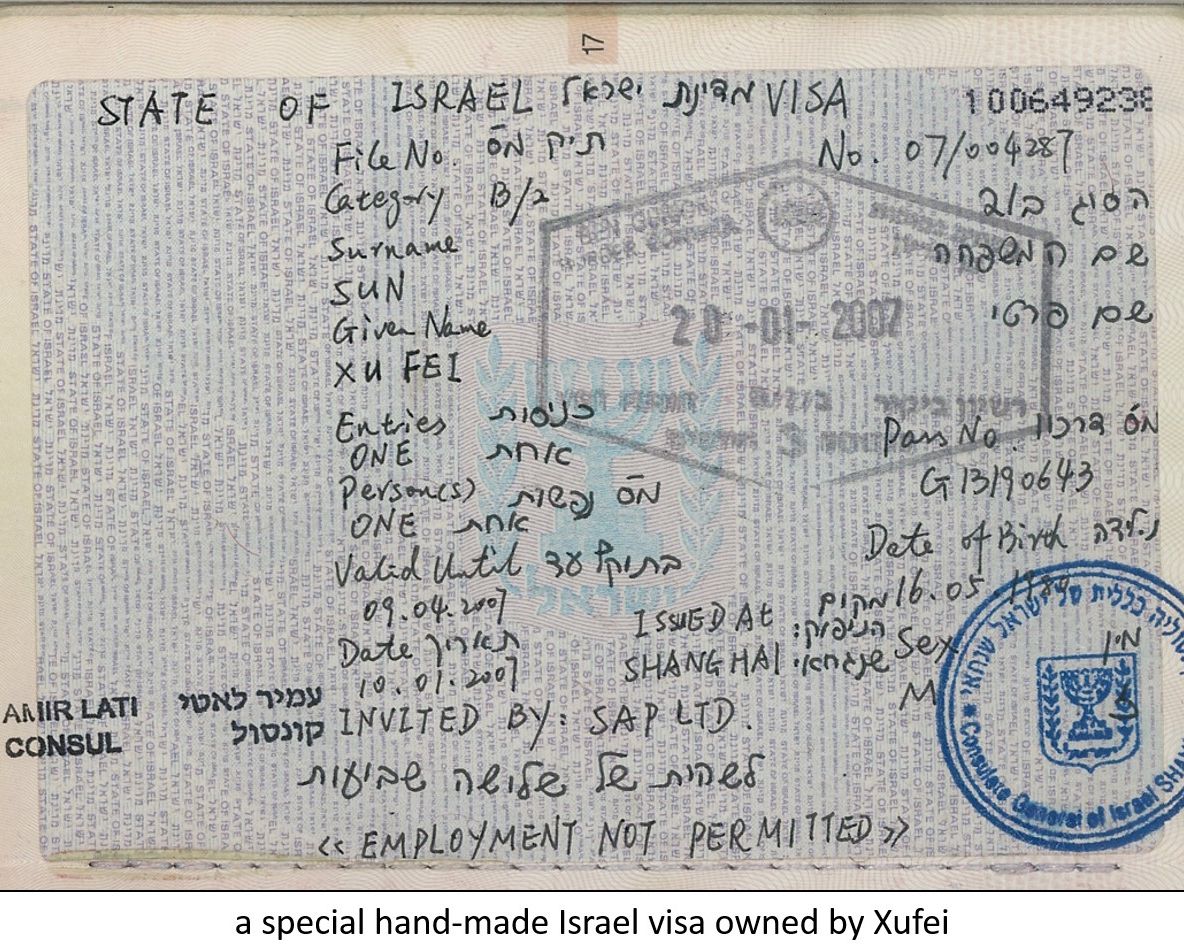 17
STATE OF ISRAEL מדינת ישראל VISA 100649238
File No. תיק מס No. 07/004287
Category B/2 הסוג ב/2
Surname שם המשפחה
SUN
Given Name שם פרטי
XU FEI
20 -01- 2007
רשיון ביקור
Entries כניסות Pass No. מס דרכון
ONE אחת
Person(s) מס נפשות G13190643
ONE אחת
Date of Birth
Valid Until בתוקף עד
09.04.2007 16.05
ISSUED At מקום הניפוק:
Date תאריך SHANGHAI שנגחאי Sex מין
10.01.2007 M
AMIR LATI עמיר לאטי
CONSUL קונסול
INVITED BY: SAP LTD.
לשהית של שלושה שבועות
<< EMPLOYMENT NOT PERMITTED >>
Consulate General of Israel
a special hand-made Israel visa owned by Xufei